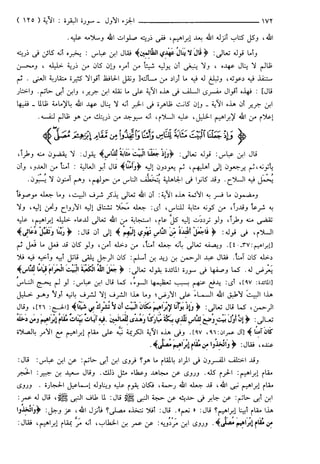 ١٧٢ الجزء الأول ـ سورة البقرة : الآية ( ١٢٥ )
الله، وكل كتاب أنزله الله بعد إبراهيم، ففي ذريته صلوات الله وسلامه عليه.
وأما قوله تعالى: ﴿قَالَ لَا يَنَالُ عَهْدِي الظَّالِمِينَ﴾ فقال ابن عباس: يخبره أنه كائن في ذريته
ظالم لا ينال عهده ، ولا ينبغي أن يوليه شيئاً من أمره وإن كان من ذرية خليله ، ومحسن
ستنفذ فيه دعوته، وتبلغ له فيه ما أراد من مسألته[ ونقل الحافظ أقوالاً كثيرة متقاربة المعنى . ثم
قال] : فهذه أقوال مفسري السلف في هذه الآية على ما نقله ابن جرير، وابن أبي حاتم. واختار
ابن جرير أن هذه الآية ـ وإن كانت ظاهرة في الخبر أنه لا ينال عهد الله بالإمامة ظالماً ـ ففيها
إعلام من الله لإبراهيم الخليل، عليه السلام، أنه سيوجد من ذريتك من هو ظالم لنفسه.
﴿وَإِذْ جَعَلْنَا الْبَيْتَ مَثَابَةً لِّلنَّاسِ وَأَمْنًا وَاتَّخِذُوا مِن مَّقَامِ إِبْرَاهِيمَ مُصَلًّى﴾
قال ابن عباس: قوله تعالى: ﴿وَإِذْ جَعَلْنَا الْبَيْتَ مَثَابَةً لِّلنَّاسِ﴾ يقول: لا يقضون منه وطراً،
يأتونه، ثم يرجعون إلى أهليهم، ثم يعودون إليه ﴿وَأَمْنًا﴾ قال أبو العالية : أمناً من العدو، وأن
يُحْمَل فيه السلاح. وقد كانوا في الجاهلية يُتَخَطَّف الناس من حولهم، وهم آمنون لا يُسبَون.
ومضمون ما فسر به الأئمة هذه الآية: أن الله تعالى يذكر شرف البيت، وما جعله موصوفاً
به شرعاً وقدراً، من كونه مثابة للناس، أي: جعله مَحَلاً تشتاق إليه الأرواح وتحن إليه، ولا
تقضي منه وطراً، ولو ترددَت إليه كلَّ عام، استجابة من الله تعالى لدعاء خليله إبراهيم، عليه
السلام، في قوله: ﴿فَاجْعَلْ أَفْئِدَةً مِّنَ النَّاسِ تَهْوِي إِلَيْهِمْ﴾ إلى أن قال: ﴿رَبَّنَا وَتَقَبَّلْ دُعَاءِ﴾
[إبراهيم: ٣٧ـ٤٠]. ويصفه تعالى بأنه جعله أمناً، من دخله أمن، ولو كان قد فعل ما فعل ثم
دخله كان آمناً. فقال عبد الرحمن بن زيد بن أسلم: كان الرجل يلقى قاتل أبيه وأخيه فيه فلا
يَعْرض له. كما وصفها في سورة المائدة بقوله تعالى: ﴿جَعَلَ اللَّهُ الْكَعْبَةَ الْبَيْتَ الْحَرَامَ قِيَامًا لِّلنَّاسِ﴾
[المائدة: ٩٧]، أي: يدفع عنهم بسبب تعظيمها السوء، كما قال ابن عباس: لو لم يحج الناسُ
هذا البيت لأطبق الله السماءَ على الأرض، وما هذا الشرف إلا لشرف بانيه أولاً وهو خليل
الرحمن، كما قال تعالى: ﴿وَإِذْ بَوَّأْنَا لِإِبْرَاهِيمَ مَكَانَ الْبَيْتِ أَن لَّا تُشْرِكْ بِي شَيْئًا﴾ [الحج: ٢٦]، وقال
﴿إِنَّ أَوَّلَ بَيْتٍ وُضِعَ لِلنَّاسِ لَلَّذِي بِبَكَّةَ مُبَارَكًا وَهُدًى لِّلْعَالَمِينَ فِيهِ آيَاتٌ بَيِّنَاتٌ مَّقَامُ إِبْرَاهِيمَ وَمَن دَخَلَهُ
كَانَ آمِنًا﴾ [آل عمران: ٩٦، ٩٧]. وفي هذه الآية الكريمة نبَّه على مقام إبراهيم مع الأمر بالصلاة
عنده، فقال: ﴿وَاتَّخِذُوا مِن مَّقَامِ إِبْرَاهِيمَ مُصَلًّى﴾.
وقد اختلف المفسرون في المراد بالمقام ما هو؟ فروى ابن أبي حاتم: عن ابن عباس: قال:
مقام إبراهيم: الحرم كله. وروي عن مجاهد وعطاء مثل ذلك. وقال سعيد بن جبير: الحجر
مقام إبراهيم نبي الله، قد جعله الله رحمة، فكان يقوم عليه ويناوله إسماعيل الحجارة . وروى
ابن أبي حاتم: عن جابر في حديثه عن حجة النبي ﷺ قال: لما طاف النبي ﷺ، قال له عمر:
هذا مقام أبينا إبراهيم؟ قال: «نعم». قال: أفلا نتخذه مصلى؟ فأنزل الله، عز وجل: ﴿وَاتَّخِذُوا
مِن مَّقَامِ إِبْرَاهِيمَ مُصَلًّى﴾. وروى ابن مَرْدُويه: عن عمر بن الخطاب، أنه مَرَّ بمقام إبراهيم، فقال: